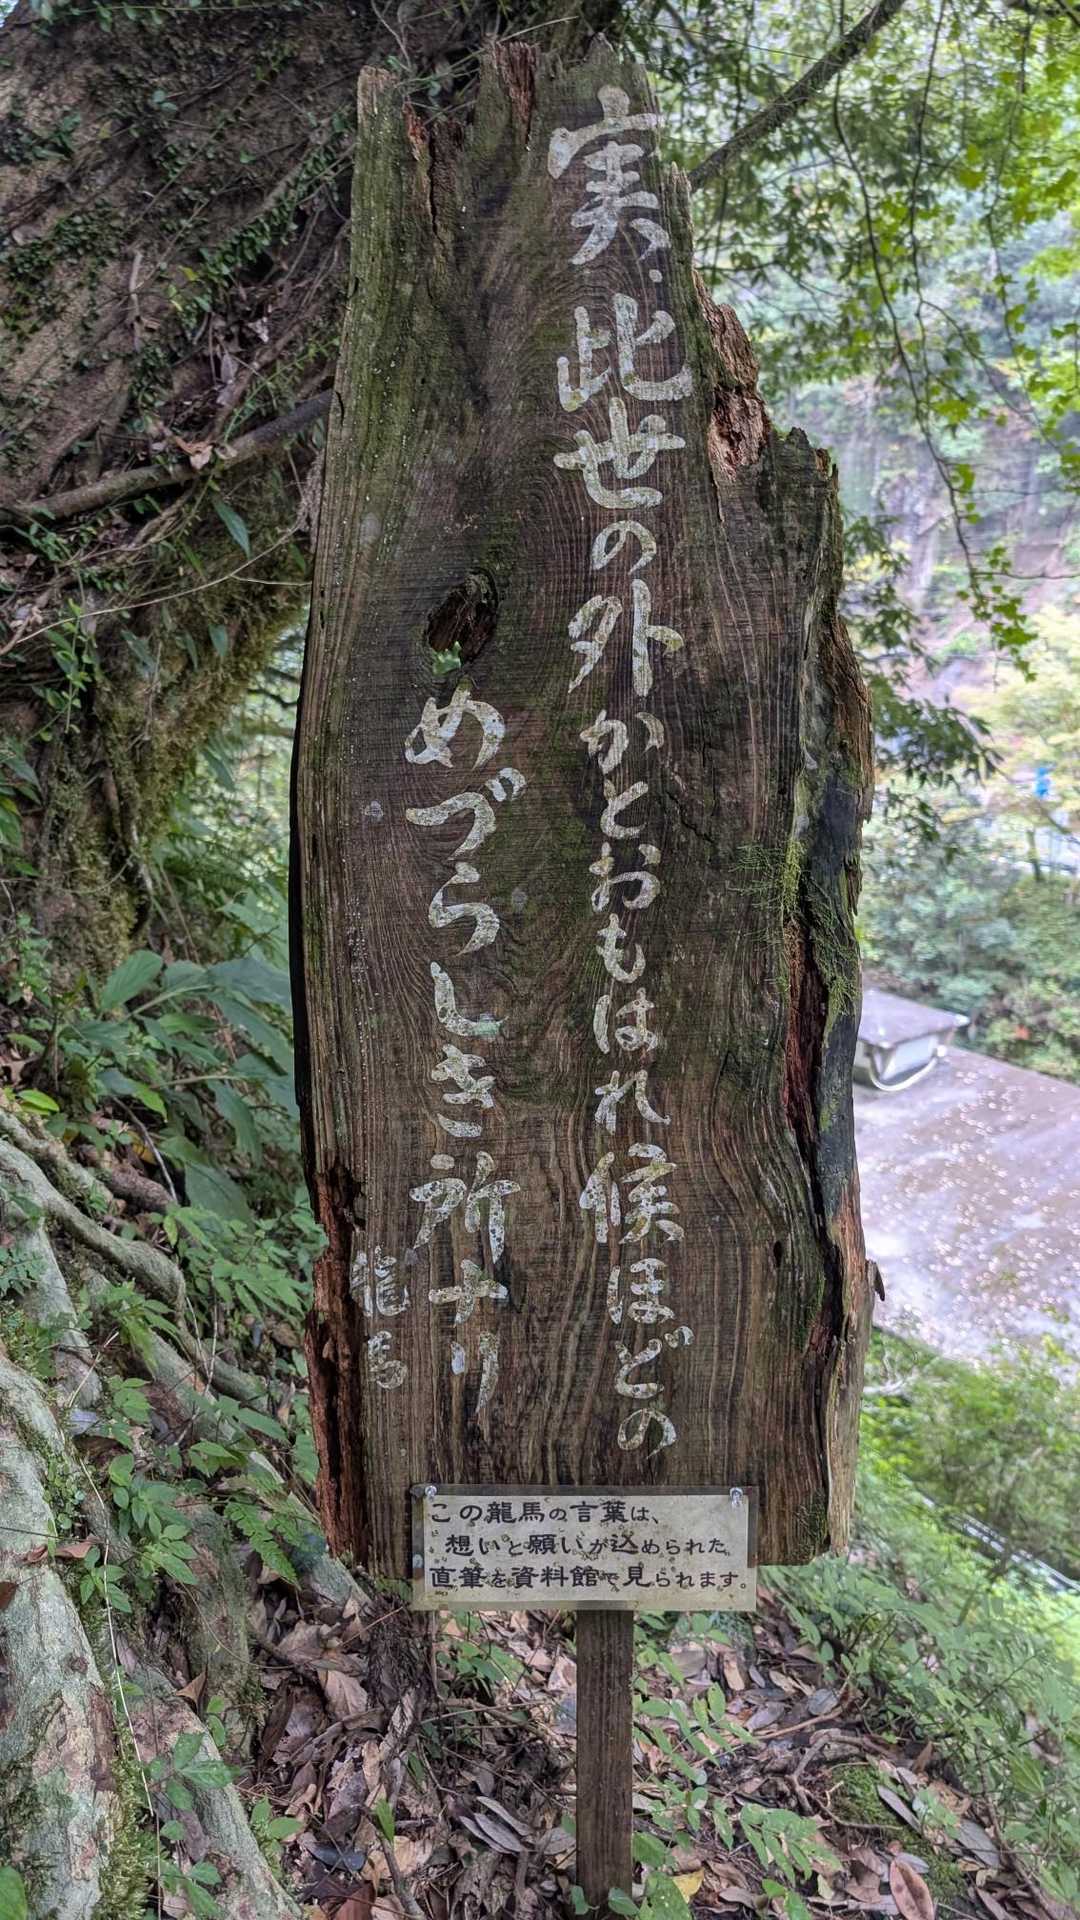 実、此世の外かとおもはれ候ほどの
めづらしき所ナリ
龍馬
この龍馬の言葉は、
想いと願いが込められた
直筆を資料館で見られます。